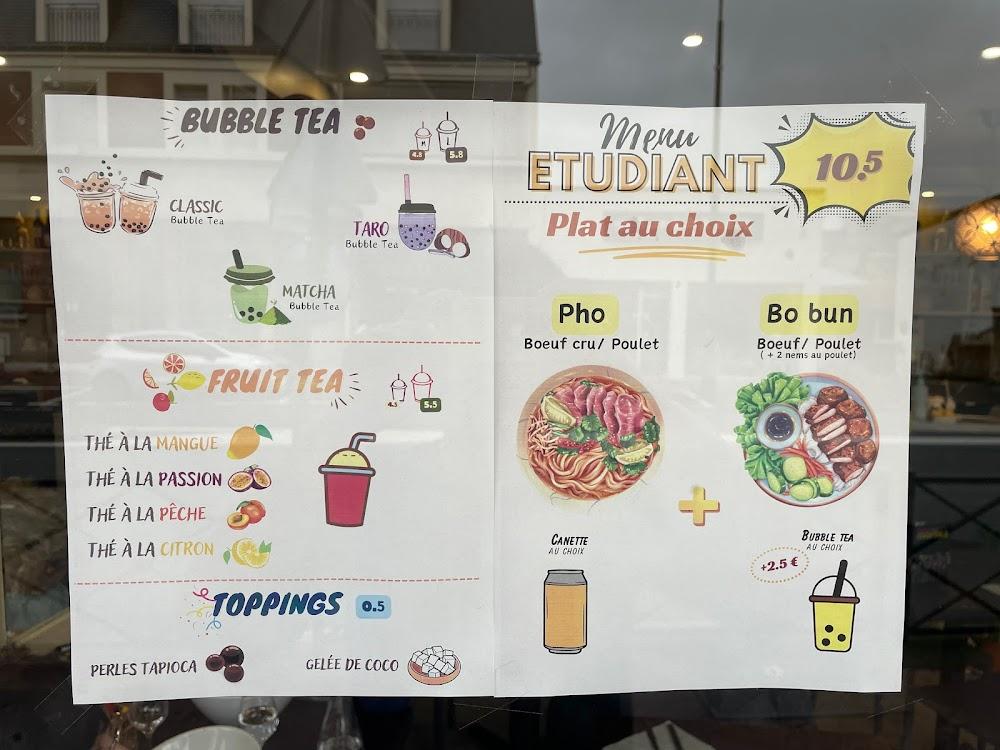 BUBBLE TEA
4.8
5.8
CLASSIC
Bubble Tea
TARO
Bubble Tea
MATCHA
Bubble Tea
FRUIT TEA
4.5
5.5
THÉ À LA MANGUE
THÉ À LA PASSION
THÉ À LA PÊCHE
THÉ À LA CITRON
TOPPINGS 0.5
PERLES TAPIOCA
GELÉE DE COCO
Menu
ETUDIANT
10.5
Plat au choix
Pho
Boeuf cru/ Poulet
Bo bun
Boeuf/ Poulet
( + 2 nems au poulet)
CANETTE
AU CHOIX
BUBBLE TEA
AU CHOIX
+2.5 €